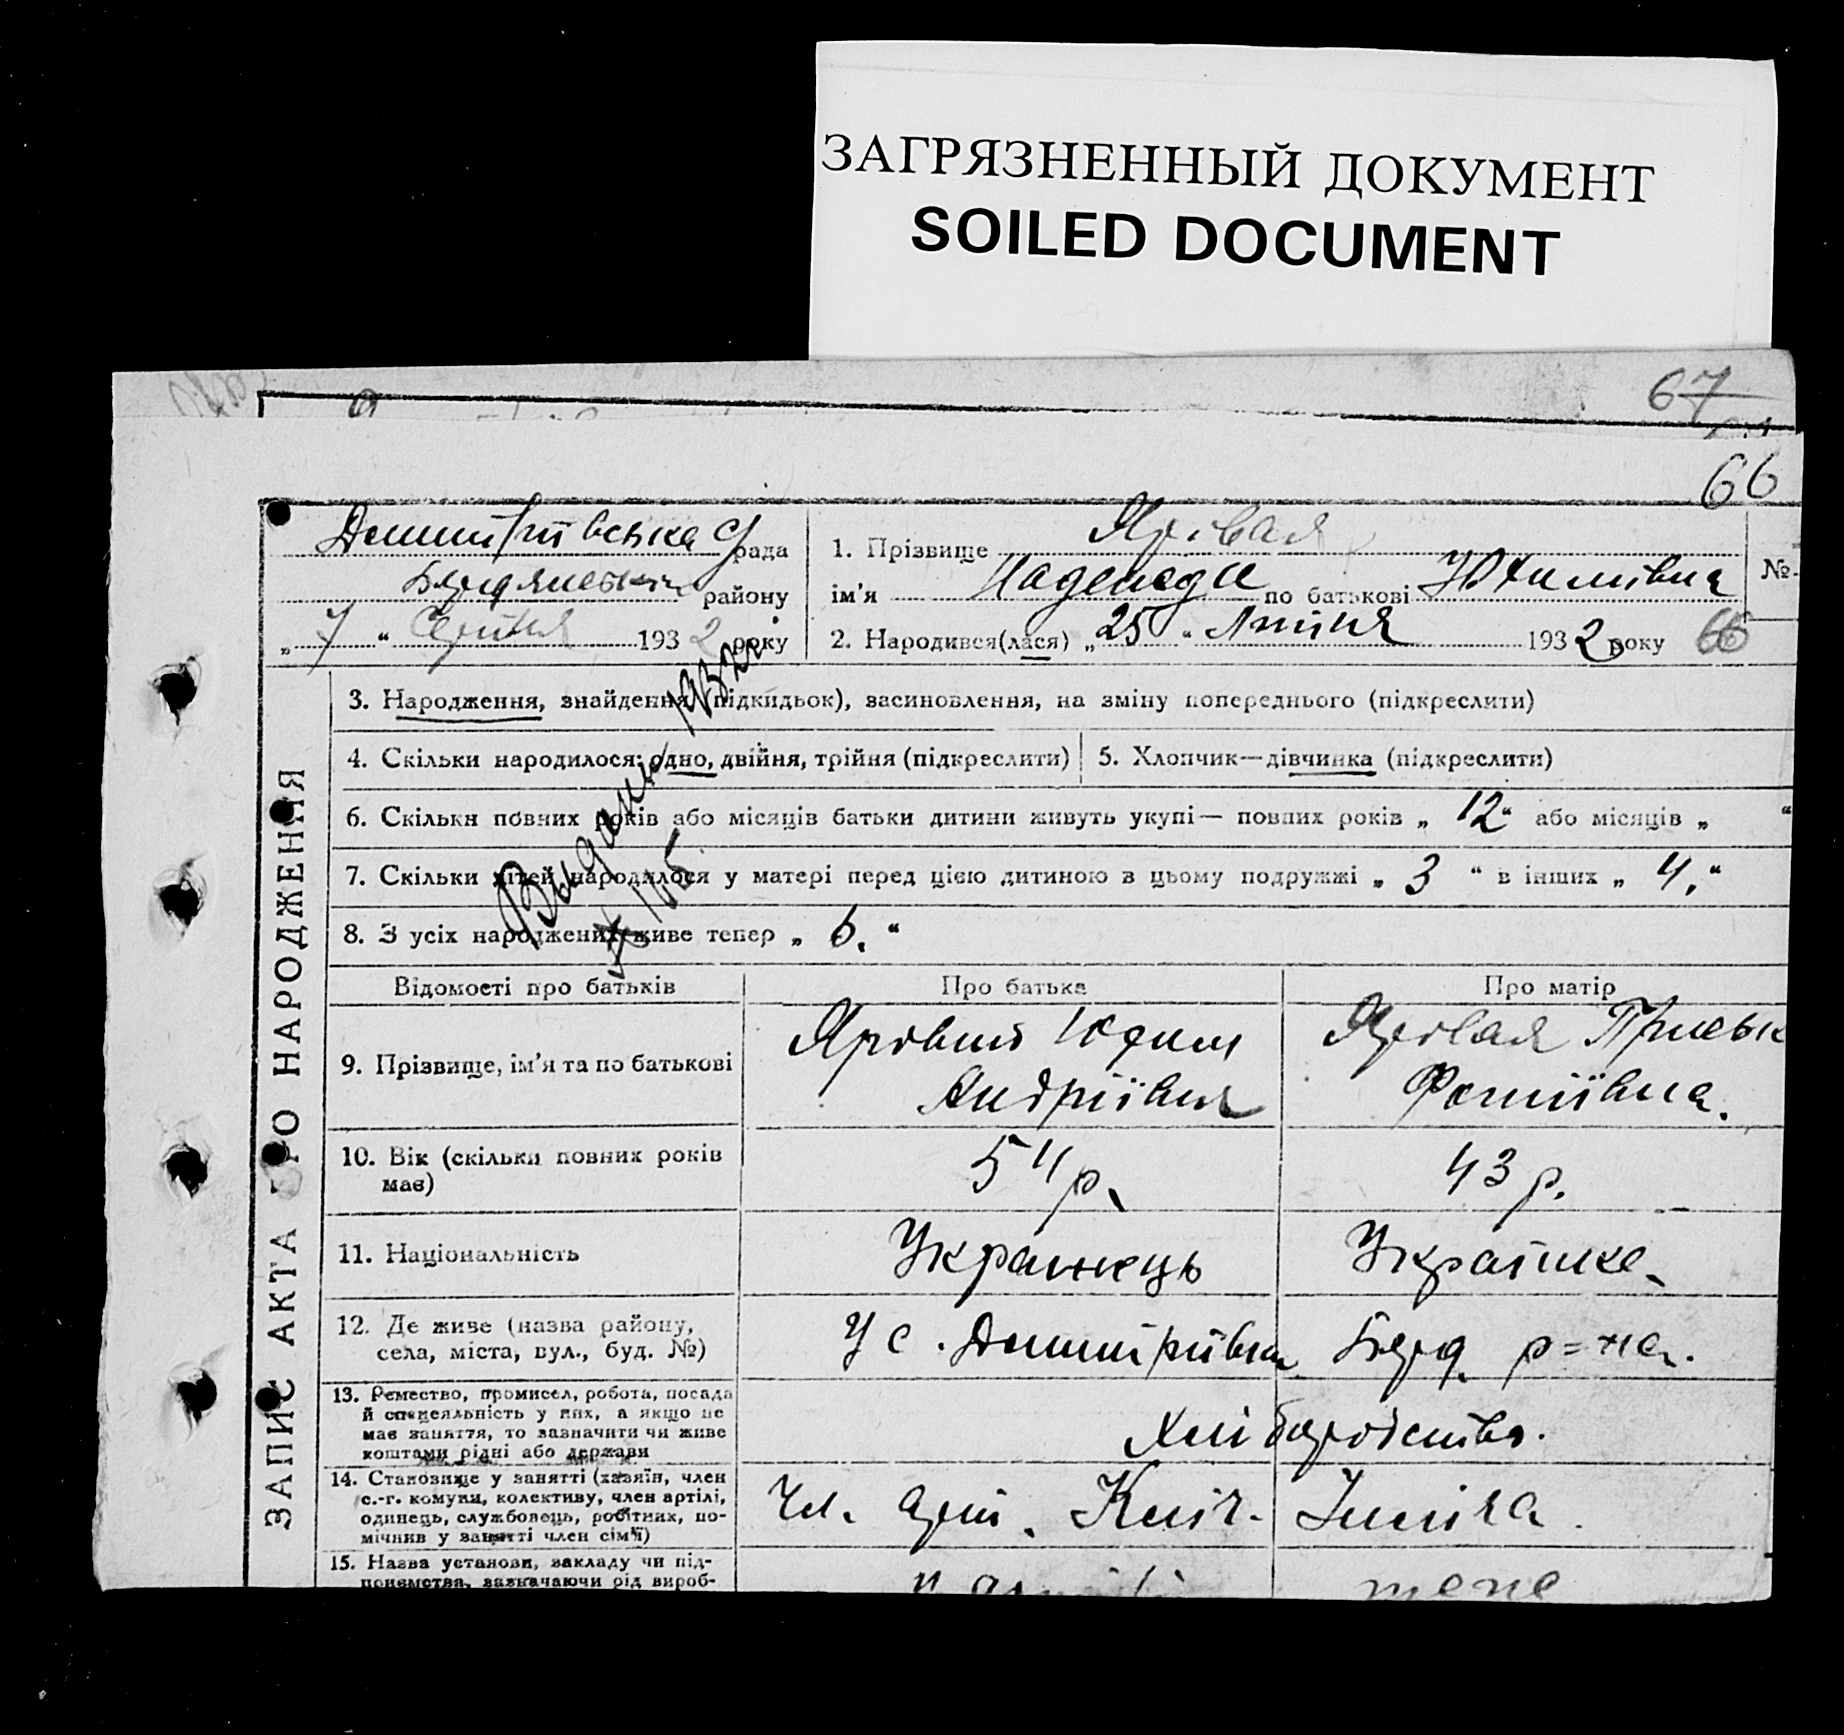 ЗАГРЯЗНЕННЫЙ ДОКУМЕНТ
SOILED DOCUMENT
67
66
Дмитрівська рада
Бердянськ району
„ 7 “ Серпня 1932 року
1. Прізвище Ярівая
ім'я Надежда по батькові Юхимівна
2. Народився(лася) „ 25 “ Липня 1932 року 66
№
ЗАПИС АКТА ПРО НАРОДЖЕННЯ
3. Народження, знайдення (підкидьок), засиновлення, на зміну попереднього (підкреслити)
4. Скільки народилося: одно, двійня, трійня (підкреслити)
5. Хлопчик—дівчинка (підкреслити)
6. Скільки повних років або місяців батьки дитини живуть укупі— повних років „ 12 “ або місяців „ “
7. Скільки дітей народилося у матері перед цією дитиною в цьому подружжі „ 3 “ в інших „ 4. “
8. З усіх народжених живе тепер „ 6. “
Відомості про батьків Про батька Про матір
9. Прізвище, ім'я та по батькові
Ярівий Юхим
Андріївич
Ярівая Приськ
Фотіївна.
10. Вік (скільки повних років має)
54 р.
43 р.
11. Національність
Українець
Українка
12. Де живе (назва району,
села, міста, вул., буд. №)
У с. Дмитрівка Берд. р=на.
13. Ремество, промисел, робота, посада
й спецеяльність у них, а якщо не
має заняття, то зазначити чи живе
коштами рідні або держави
Хліборобство.
14. Становище у занятті (хазяїн, член
с.-г. комуни, колективу, член артілі,
одинець, службовець, робітник, по-
мічник у занятті член сім'ї)
Чл. арт.
15. Назва установи, закладу чи під-
приємства, зазначаючи рід вироб-